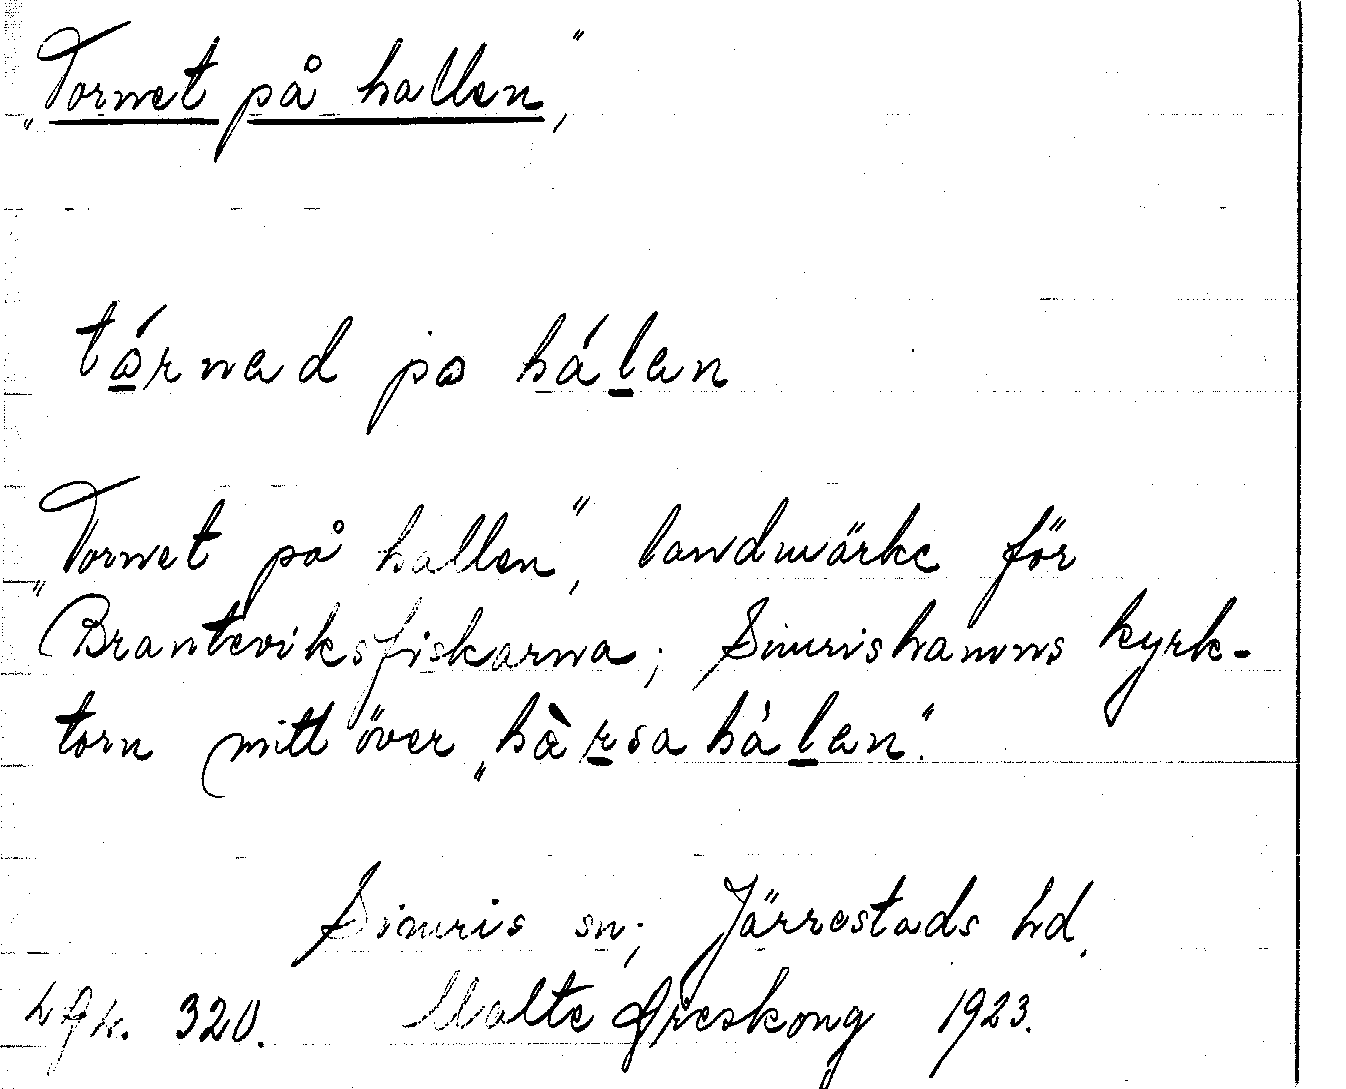 „Tornet på hallen”,
tárned pa hálen
„Tornet på hallen”, landmärke för
Branteviksfiskarna; Simrishamns kyrk-
torn mitt över „hàrsahálen”.
Simris sn; Järrestads hd.
320. Malte 1923.